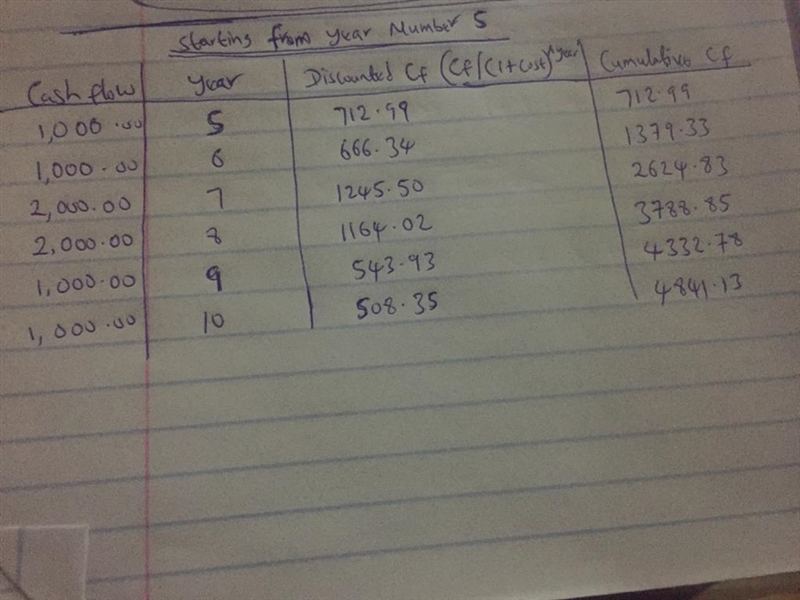 Starting from year Number 5
Cash flow year Discounted Cf (Cf/(1+cost)^year) Cumulative Cf
1,000.00 5 712.99 712.99
1,000.00 6 666.34 1379.33
2,000.00 7 1245.50 2624.83
2,000.00 8 1164.02 3788.85
1,000.00 9 543.93 4332.78
1,000.00 10 508.35 4841.13